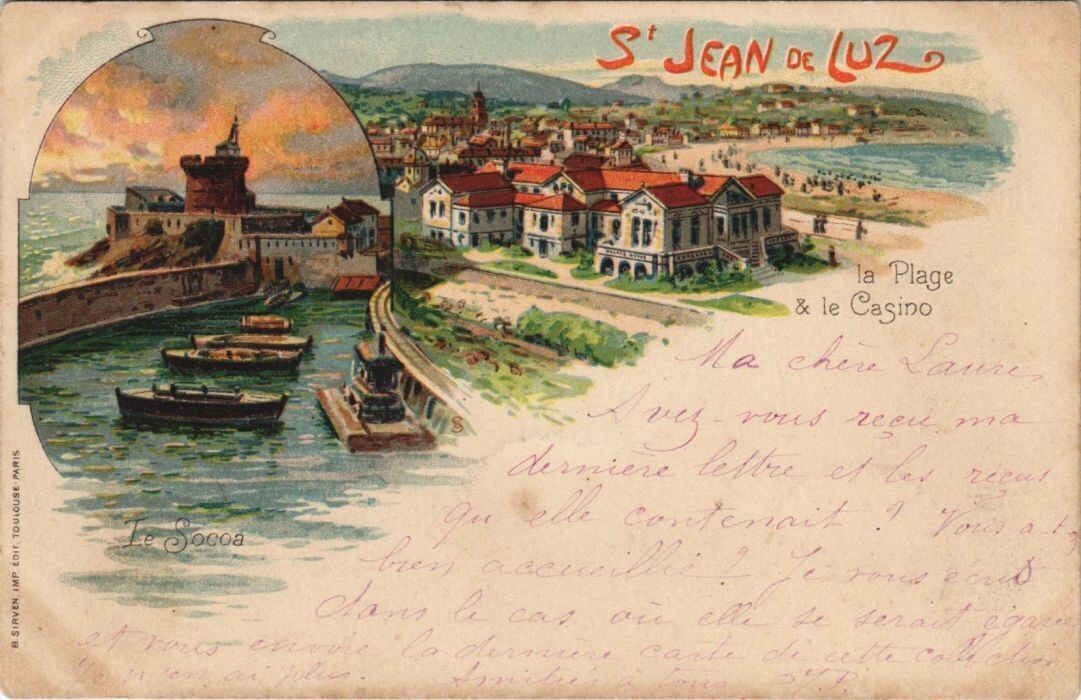 St JEAN DE LUZ
la Plage
& le Casino
Le Socoa
B. SIRVEN, IMP. ÉDIT. TOULOUSE-PARIS
Ma chère Laure,
Avez-vous reçu ma
dernière lettre et les reçus
qu'elle contenait ? Vous a-t-
bien accueillie ? Je vous écris
dans le cas où elle se serait égarée
et vous envoie la dernière carte de cette collection
Je n'en ai plus. Amitiés à tous